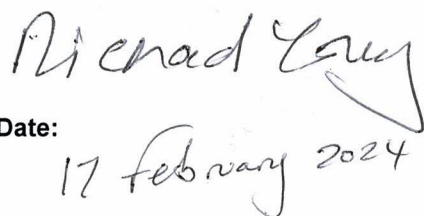 Richard
Date:
17 February 2024